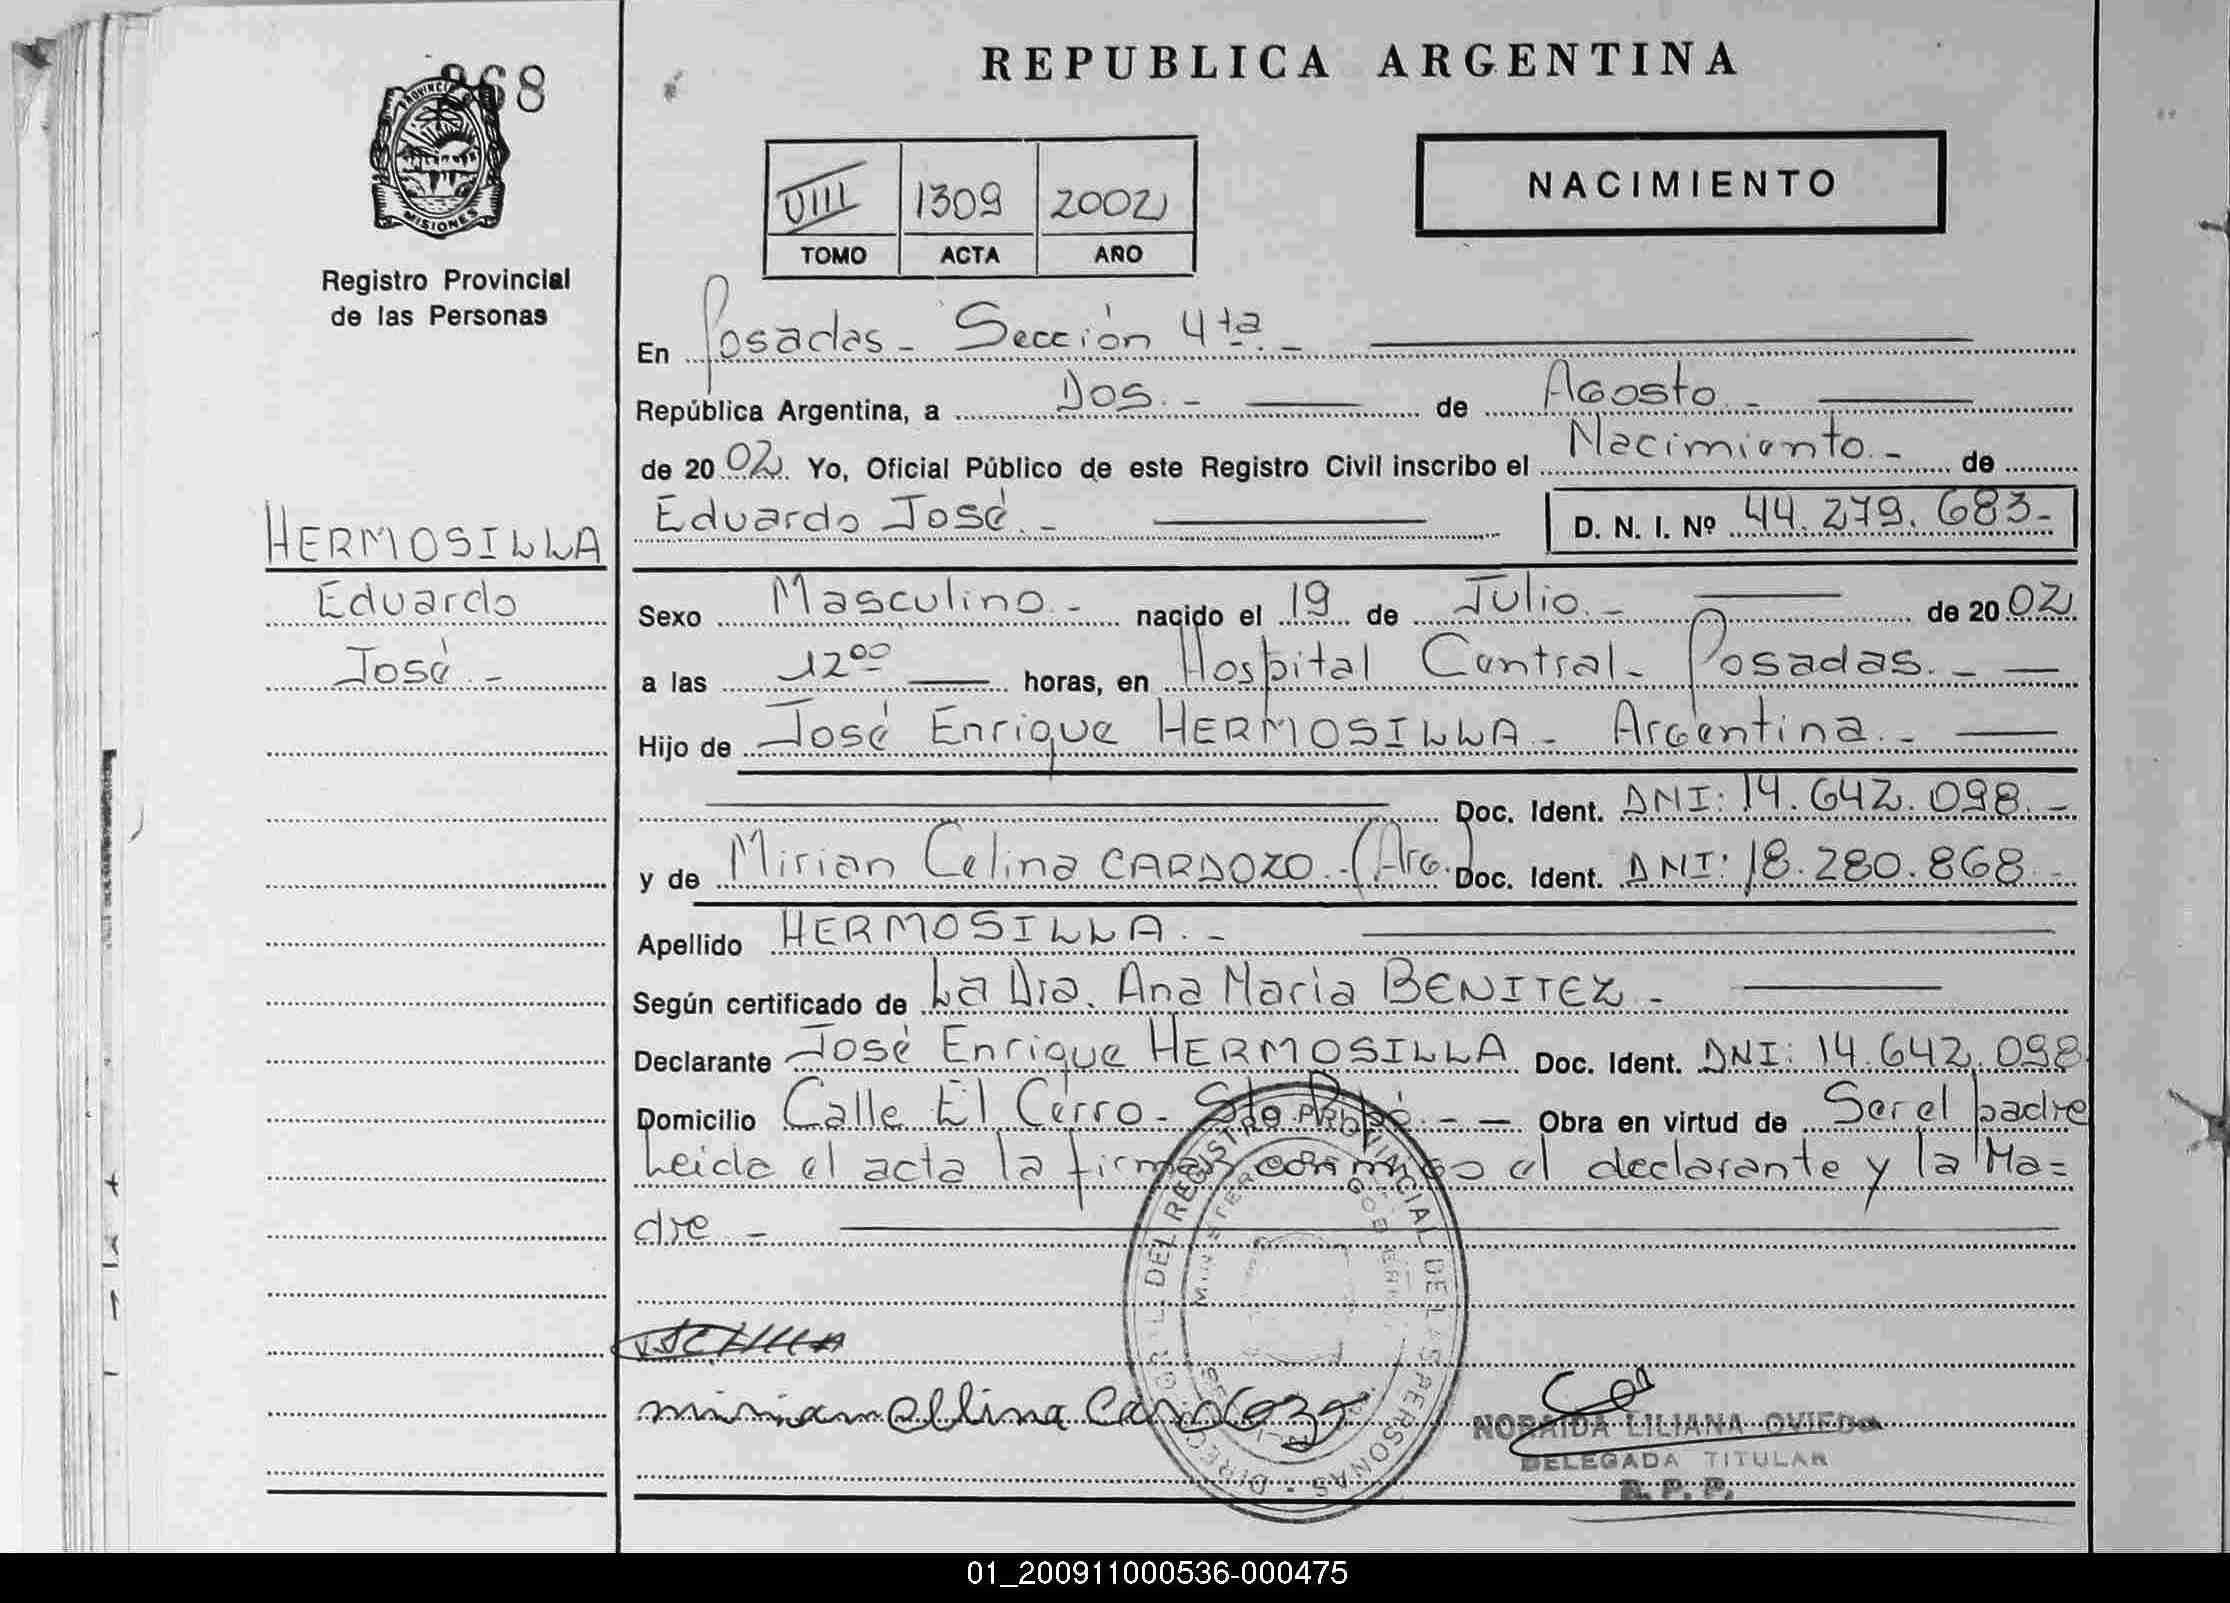 868
REPUBLICA ARGENTINA
PROVINCIA
MISIONES
Registro Provincial
de las Personas
VIII 1309 2002
TOMO ACTA AÑO
NACIMIENTO
En Posadas - Sección 4ta. -
República Argentina, a Dos. - de Agosto -
de 2002. Yo, Oficial Público de este Registro Civil inscribo el Nacimiento. - de
Eduardo José. - D. N. I. Nº 44.279.683-
HERMOSILLA
Eduardo
José. -
Sexo Masculino. - nacido el 19 de Julio. - de 2002
a las 12 00 horas, en Hospital Central - Posadas. -
Hijo de José Enrique HERMOSILLA - Argentina. -
Doc. Ident. DNI: 14.642.098. -
y de Mirian Celina CARDOZO. - (Arg.) Doc. Ident. DNI: 18.280.868 -
Apellido HERMOSILLA. -
Según certificado de La Dra. Ana María BENITEZ -
Declarante José Enrique HERMOSILLA Doc. Ident. DNI: 14.642.098
Domicilio Calle El Cerro - Sto Pipó. - - Obra en virtud de Ser el padre
Leida el acta la firman conmigo el declarante y la Ma=
dre -
DIRECC. GRAL. DEL REGISTRO PROVINCIAL DE LAS PERSONAS
MINISTERIO GOBIERNO
MISIONES
miriam cellina Cardozo
NORAIDA LILIANA OVIEDO
DELEGADA TITULAR
R. P. P.
01_200911000536-000475